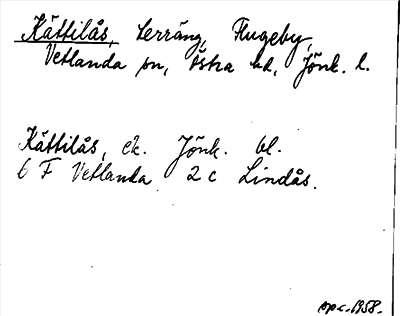 Kättilås, terräng, Flugeby,
Vetlanda sn, Östra hd, Jönk. l.
Kättilås, ek. Jönk. bl.
6 F Vetlanda 2 c Lindås.
op c. 1958.